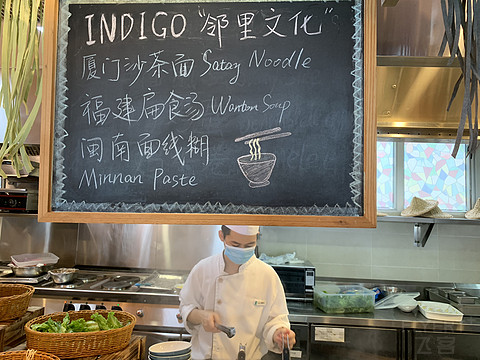 INDIGO "邻里文化"
厦门沙茶面 Satay Noodle
福建扁食汤 Wonton Soup
闽南面线糊
Minnan Paste